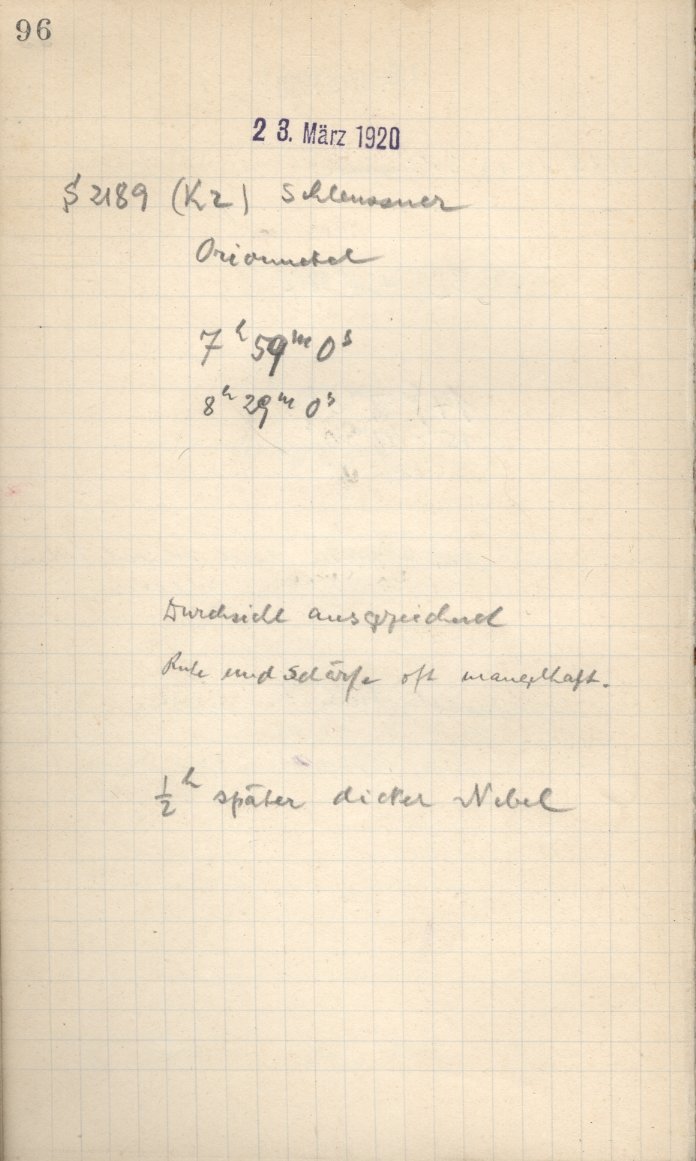 96
23. März 1920
S 2189 (Kz) Schleussner
Orionnebel
7h 59m 0s
8h 29m 0s
Durchsicht ausgezeichnet
Ruhe und Schärfe oft mangelhaft.
½h später dicker Nebel